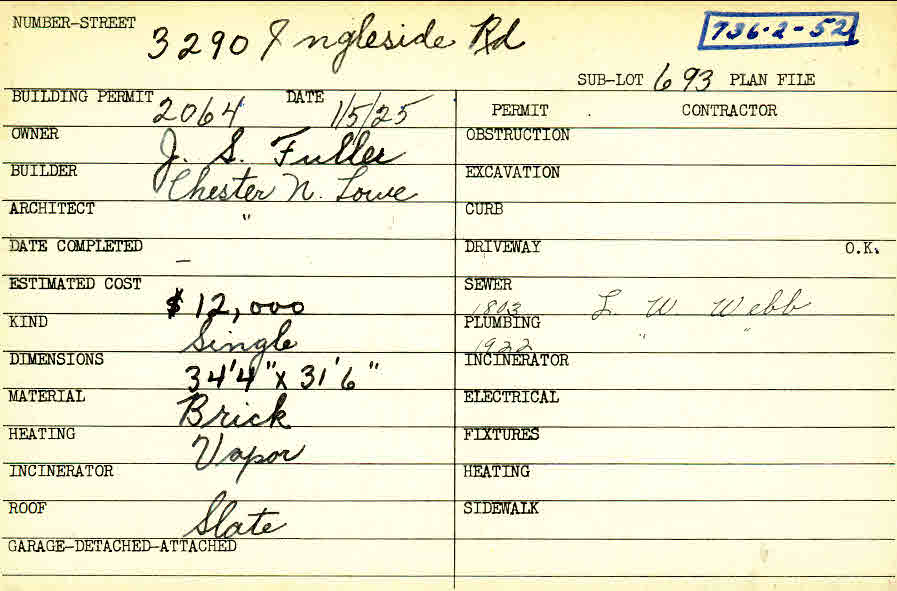 NUMBER-STREET 3290 Ingleside Rd 736-2-52
SUB-LOT 693 PLAN FILE
BUILDING PERMIT 2064 DATE 1/5/25
PERMIT CONTRACTOR
OWNER J. S. Fuller
OBSTRUCTION
BUILDER Chester N. Lowe
EXCAVATION
ARCHITECT "
CURB
DATE COMPLETED –
DRIVEWAY O.K.
ESTIMATED COST $12,000
SEWER 1803 L. W. Webb
KIND Single
PLUMBING 1922 " "
DIMENSIONS 34'4" x 31'6"
INCINERATOR
MATERIAL Brick
ELECTRICAL
HEATING Vapor
FIXTURES
INCINERATOR
HEATING
ROOF Slate
SIDEWALK
GARAGE-DETACHED-ATTACHED